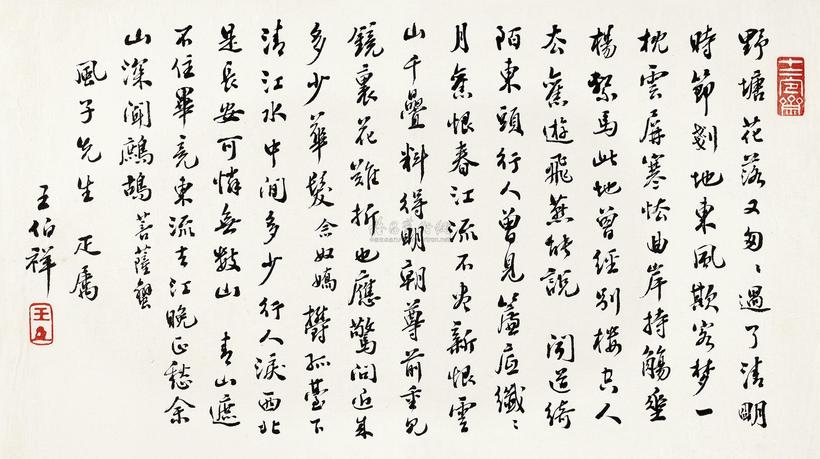 野塘花落又匆〻過了清明
時節剗地東風欺客夢一
枕雲屏寒怯曲岸持觴垂
楊繫馬此地曾經別樓空人
去舊遊飛燕能說 聞道綺
陌東頭行人曾見簾底纖〻
月舊恨春江流不盡新恨雲
山千疊料得明朝尊前重見
鏡裏花難折也應驚問近來
多少華髮 念奴嬌 鬱孤臺下
清江水中間多少行人淚西北
是長安可憐無數山 青山遮
不住畢竟東流去江晚正愁余
山深聞鷓鴣 菩薩蠻
風子先生 疋屬
王伯祥